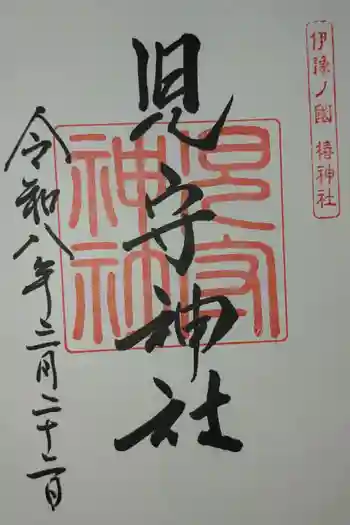 伊豫ノ國 椿神社
児守神社
児守神社
令和八年三月二十二日